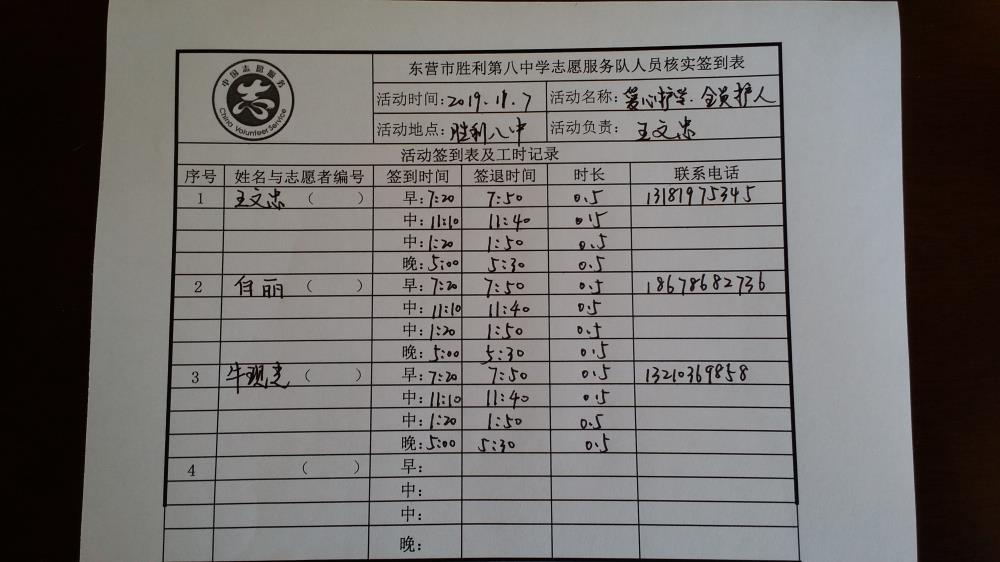 东营市胜利第八中学志愿服务队人员核实签到表
中国志愿服务
China Volunteer Service
活动时间：2019.11.7 活动名称：爱心护学.全员护人
活动地点：胜利八中 活动负责：王文忠
活动签到表及工时记录
序号 姓名与志愿者编号 签到时间 签退时间 时长 联系电话
1 王文忠 （ ） 早：7:20 7:50 0.5 13181975345
中：11:10 11:40 0.5
中：1:20 1:50 0.5
晚：5:00 5:30 0.5
2 白丽 （ ） 早：7:20 7:50 0.5 18678682736
中：11:10 11:40 0.5
中：1:20 1:50 0.5
晚：5:00 5:30 0.5
3 牛现 （ ） 早：7:20 7:50 0.5 13210369858
中：11:10 11:40 0.5
中：1:20 1:50 0.5
晚：5:00 5:30 0.5
4 （ ） 早：
中：
中：
晚：